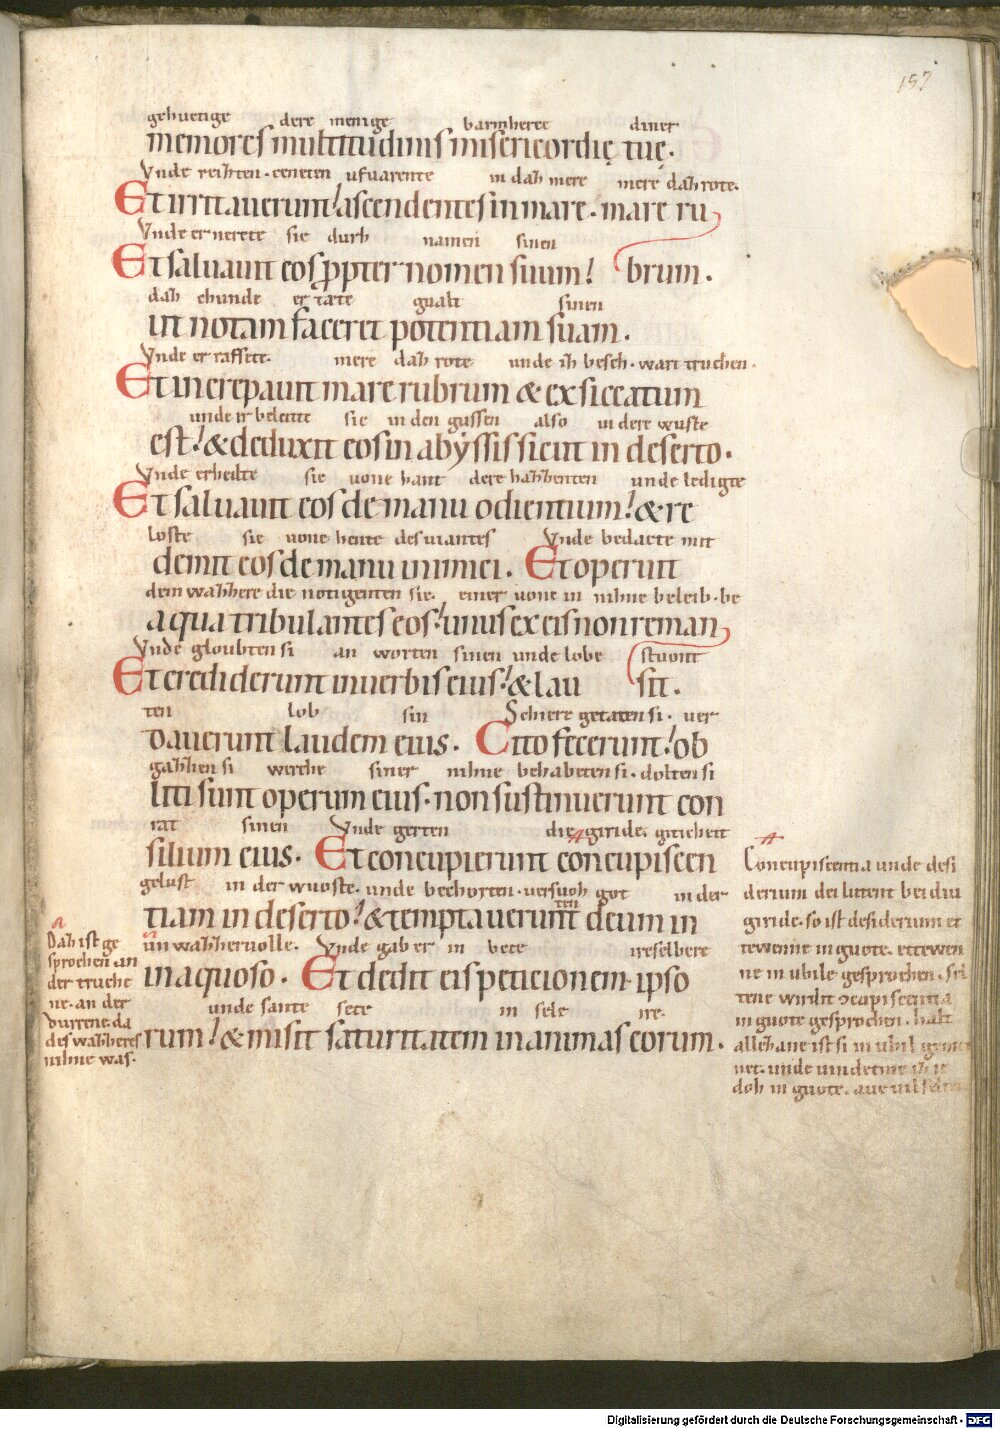 157
gehuetige dere menige barmherce diner
memores multitudinis misericordię tuę.
Vnde reihten. ufuarente in daz mere mere daz rote.
Et irritauerunt! ascendentes in mare. mare ru
Vnde er nerete sie durh namen sinen
Et saluauit eos ꝓpter nomen suum! brum.
daz chunde er tate gualt sinen
ut notam faceret potentiam suam.
Vnde er raffete. mere daz rote unde iz besch. wart truchen.
Et increpauit mare rubrum & exsiccatum
unde er beleitte sie in den gussen also in dere wuste
est! & deduxit eos in abyssis sicut in deserto.
Vnde erheilte sie uone hant dere hazzenten unde ledigte
Et saluauit eos de manu odientium! & re
loste sie uone hente des uiantes Vnde bedacte mit
demit eos de manu inimici. Et operuit
dem wazzere die notigenten sie. einer uone in nihne beleib. be
aqua tribulantes eos! unus ex eis non reman
Vnde gloubten si an worten sinen unde lobe stuont
Et crediderunt in uerbis eius! & lau sit.
ten lob sin Schiere getaten si. uer
dauerunt laudem eius. Cito fecerunt! ob
gazzen si werche siner nihne behabeten si. dolten si
liti sunt operum eius. non sustinuerunt con
rat sinen Vnde gerten die giride. giticheit
silium eius. Et concupierunt concupiscen
gelust in der wuoste. unde bechorten. uersuoh ten got in der
tiam in deserto! & temptauerunt deum in
un wazzeruolle. Vnde gab er in bete ireselbere
inaquoso. Et dedit eis peticionem ipso
unde sante sete in sele ire.
rum! & misit saturitatem in animas eorum.
A
Daz ist ge
sprochen an
der truche
ne. an der
durrene. da
des wazzeres
nihne was.
A
Concupiscentia unde desi
derium dei lutent bei diu
giride. so ist desiderium et
tewenne in guote. ettewen
ne in ubile gesprochen. sel
tene wirdit ɔcupiscentia
in guote gesprochen. halt
allezane ist si in ubil
net. unde uindet
doh in guote.
Digitalisierung gefördert durch die Deutsche Forschungsgemeinschaft - DFG